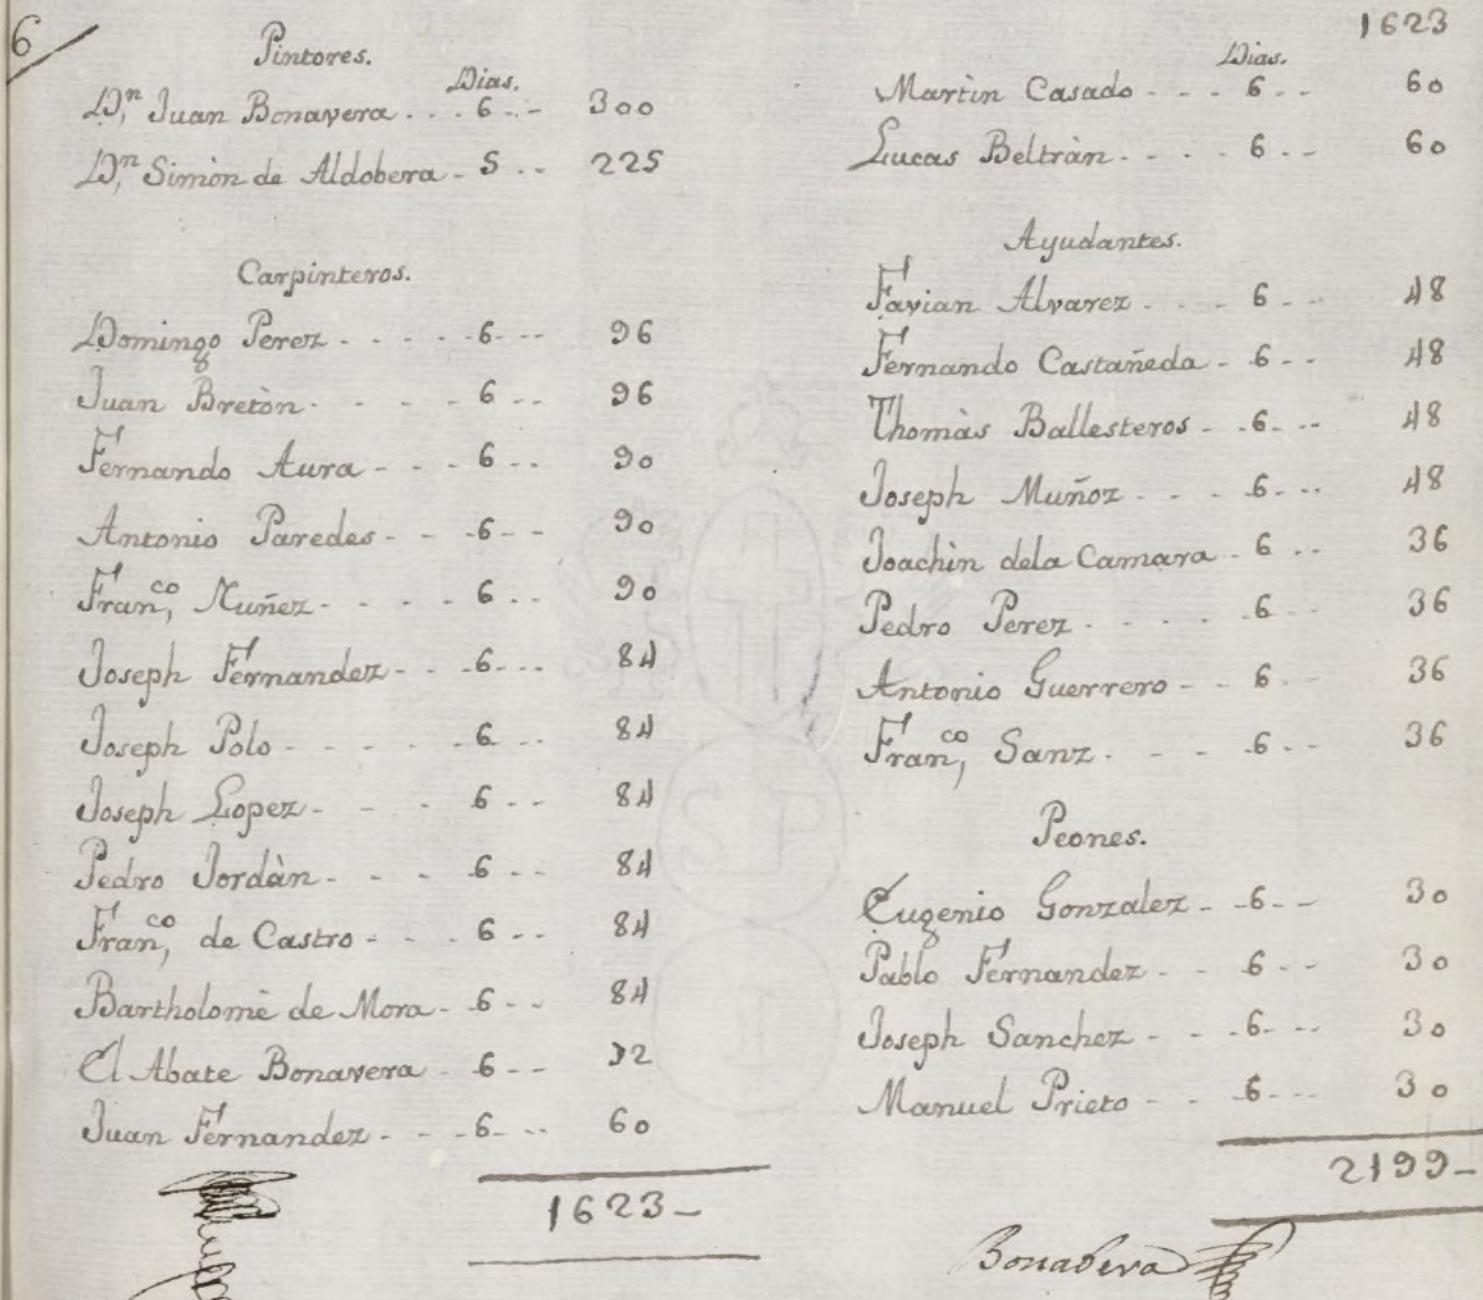 6
Pintores.
Dias.
D.n Juan Bonavera . . . 6 . . - 300
D.n Simòn de Aldobera - 5 . . 225
Carpinteros.
Domingo Perez - - - - - 6 - - - 96
Juan Bretòn - - - - - 6 - - 96
Fernando Aura - - - 6 - - 90
Antonio Paredes - - - 6 - - 90
Fran,co Nuñez - - - - - 6 - - 90
Joseph Fernandez - - - 6 - - - 84
Joseph Polo - - - - - 6 - - 84
Joseph Lopez - - - 6 - - 84
Pedro Jordàn - - - - 6 - - 84
Fran,co de Castro - - - 6 - - 84
Bartholomè de Mora - 6 - - 84
El Abate Bonavera - 6 - - 72
Juan Fernandez - - - 6 - - - 60
1623 -
1623
Dias.
Martin Casado - - - 6 - - 60
Lucas Beltràn - - - - 6 - - 60
Ayudantes.
Favian Alvarez - - - 6 - - 48
Fernando Castañeda - 6 - - 48
Thomàs Ballesteros - - 6 - - - 48
Joseph Muñoz - - - 6 - - - 48
Joachin dela Camara - 6 - - 36
Pedro Perez - - - - - 6 - - 36
Antonio Guerrero - - 6 - - 36
Fran,co Sanz - - - - 6 - - 36
Peones.
Eugenio Gonzalez - - 6 - - 30
Pablo Fernandez - - 6 - - 30
Joseph Sanchez - - - 6 - - - 30
Manuel Prieto - - - 6 - - - 30
2199 -
Bonabera